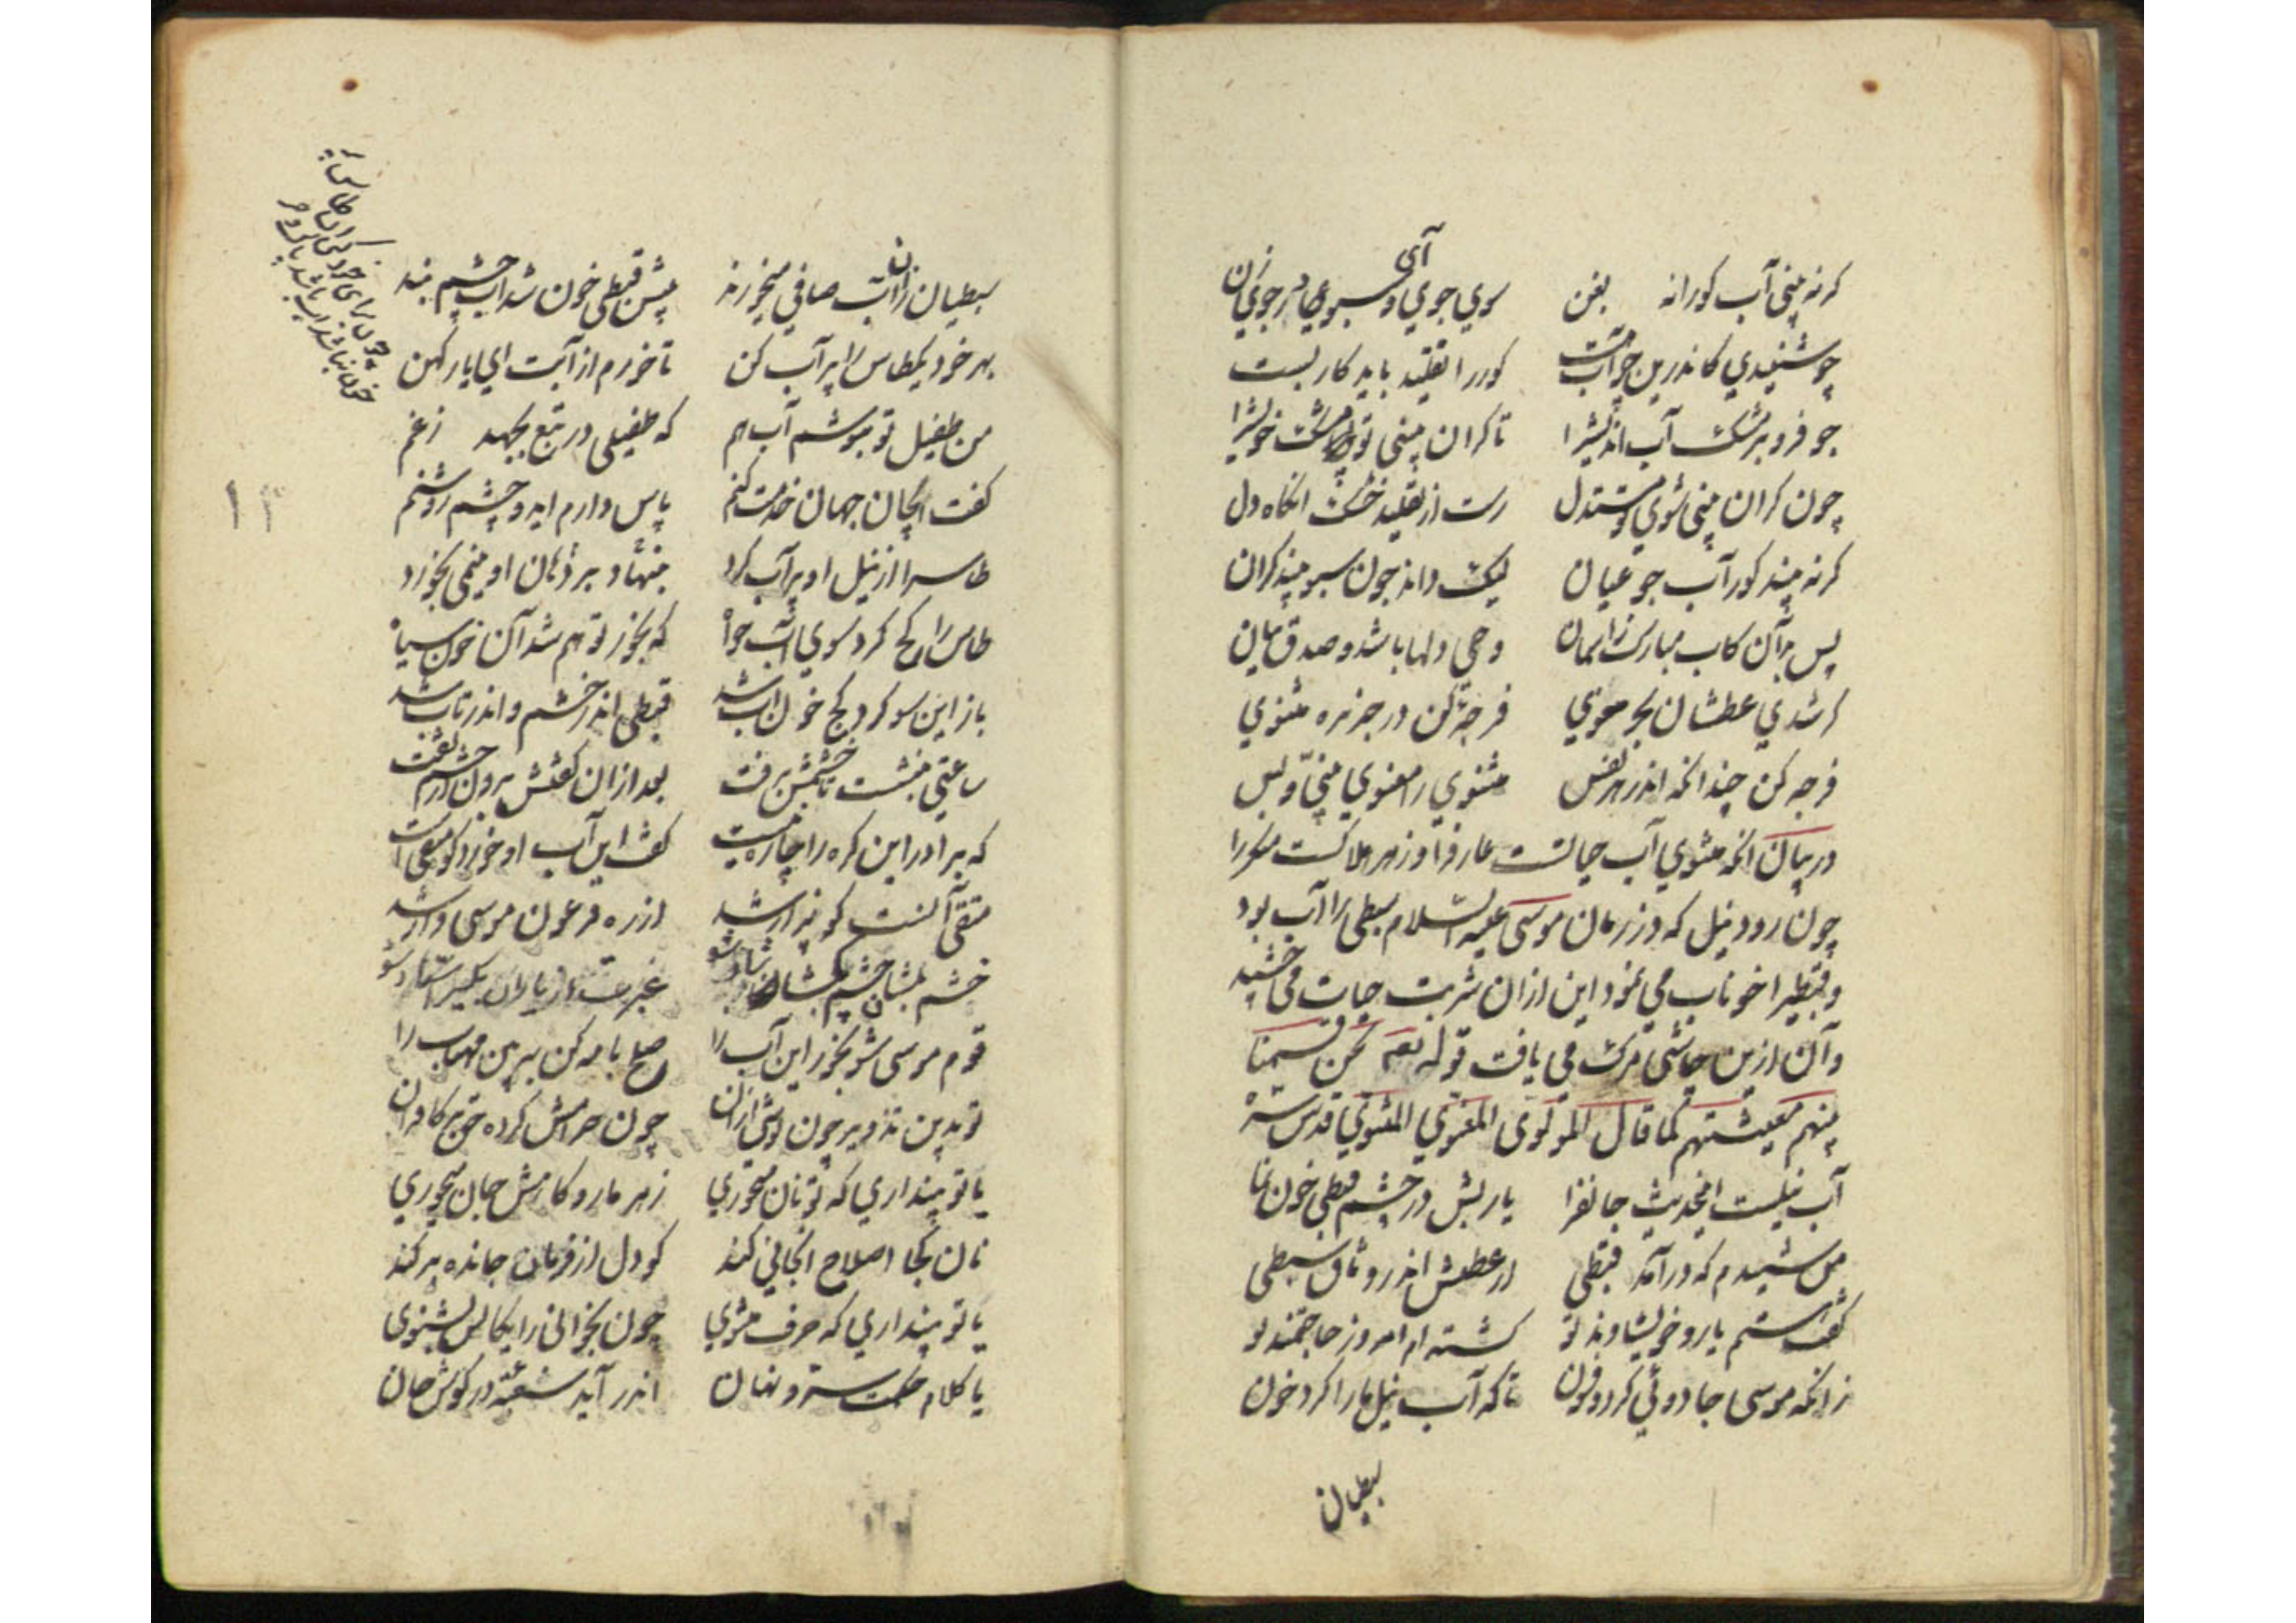 کرنه بینی آب کورانه بفن سوی جوی آی و سبو در جوی زن
چو شنیدی کاندرین جو آب هست کور را تقلید باید کار بست
جو فرو بر مشک آب اندیش را تا کران بینی تو مشک خویش را
چون کران بینی شوی تو مستدل رست از تقلید خشک انکاه دل
کرنه بیند کور آب جو عیان لیک داند چون سبو بیند کران
پس بر آن کاب مبارک ز اسمان وحی دلها باشد و صدق بیان
کر شدی عطشان بحر معنوی فرجهٔ کن در جزیره مثنوی
فرجه کن چندانکه اندر هر نفس مثنوی را معنوی بینی و بس
در بیان انکه مثنوی آب حیاتست عارفرا و زهر هلاکست منکر را
چون رود نیل که در زمان موسی علیه السلام سبطی را آب بود
و قبطیرا خوناب می نمود این ازان شربت حیات می چشید
و آن ازین چاشنی مرک می یافت قوله تعه نحن قسمنا
بینهم معیشتهم کما قال المولوی المعنوی المثنوی قدس سره
آب نیلست اینحدیث جانفزا یا ربش در چشم قبطی خون نما
من شنیدم که درآمد قبطی از عطش اندر وثاق سبطی
کفت هستم یار و خویشاوند تو کشته ام امروز حاجتمند تو
زانکه موسی جادوئی کرد و فسون تا که آب نیل ما را کرد خون
سبطیان
سبطیان زان آب صافی میخورند پیش قبطی خون شد آب از چشم بند
بهر خود یکطاس را پر آب کن تا خورم از آبت ای یار کهن
من طفیل تو بنوشم آب هم که طفیلی در تبع بجهد زغم
کفت ای جان جهان خدمت کنم پاس دارم ای دو چشم روشنم
طاس را از نیل او پر آب کرد بنهاد بر دهان او نیمی بخورد
طاس را کج کرد سوی آب خواه که بخور تو هم شد آن خون سیاه
باز این سو کرد کج خون آب شد قبطی اندر خشم و اندر تاب شد
ساعتی بنشست تا خشمش برفت بعد ازان کفتش
که برادر این کره را چاره چیست کفت این آب او خورد کو متقیست
متقی آنست کو بیزار شد از ره فرعون موسی وار شد
قوم موسی شو بخور این آب را صلح با مه کن ببین مهتاب را
تو بدین تزویر چون نوشی ازان چون حرامش کرده حق بر کافران
یا تو پنداری که تو نان میخوری زهر مار و کاهش جان میخوری
نان کجا اصلاح انجانی کند کو دل از فرمان جانده بر کند
یا تو پنداری که حرف مثنوی چون بخوانی رایکانش بشنوی
یا کلام حکمت و سر نهان اندر آید در کوش جان
۱۳